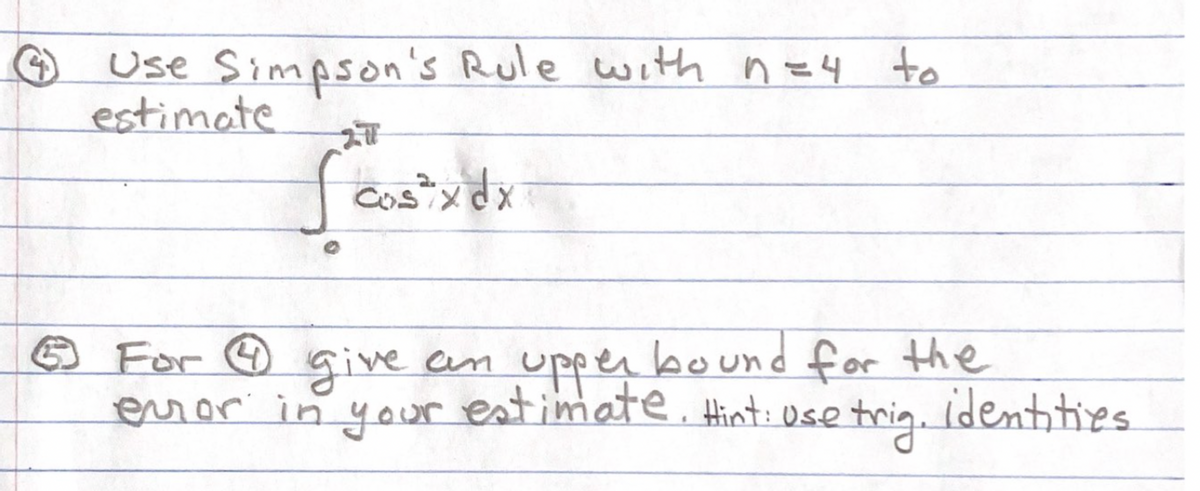 ④ Use Simpson's Rule with n=4 to
estimate
∫₀^2π cos²x dx
⑤ For ④ give an upper bound for the
error in your estimate. Hint: use trig. identities